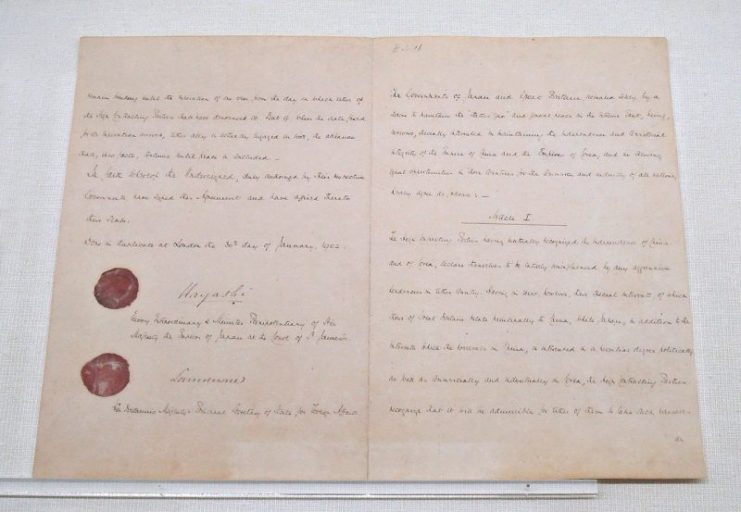 remain binding until the expiration of one year from the day on which either of
the High Contracting Parties shall have denounced it. But if, when the date fixed
for its expiration arrives, either ally is actually engaged in war, the alliance
shall, ipso facto, continue until peace is concluded.
In faith whereof the Undersigned, duly authorized by their respective
Governments, have signed this Agreement and have affixed thereto
their Seals.
Done in duplicate at London the 30th day of January, 1902.
Hayashi
Envoy Extraordinary & Minister Plenipotentiary of His
Majesty the Emperor of Japan at the Court of St. James's
Lansdowne
His Britannic Majesty's Principal Secretary of State for Foreign Affairs
The Governments of Japan and Great Britain, actuated solely by a
desire to maintain the status quo and general peace in the Extreme East, being,
moreover, specially interested in maintaining the independence and territorial
integrity of the Empire of China and the Empire of Corea, and in securing
equal opportunities in those countries for the commerce and industry of all nations,
hereby agree as follows:—
Article I.
The High Contracting Parties having mutually recognized the independence of China
and of Corea, declare themselves to be entirely uninfluenced by any aggressive
tendencies in either country. Having in view, however, their special interests, of which
those of Great Britain relate principally to China, while Japan, in addition to the
interests which she possesses in China, is interested in a peculiar degree politically
as well as commercially and industrially in Corea, the High Contracting Parties
recognize that it will be admissible for either of them to take such measures
as